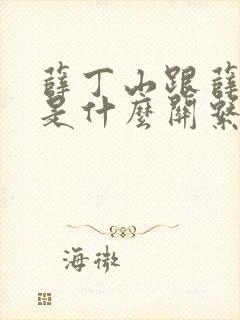 薛丁山跟薛
是什麼關繫
海微